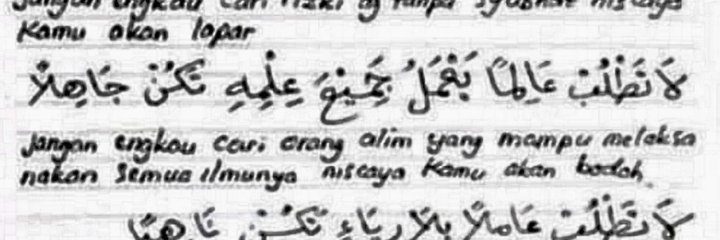 jangan engkau cari rizki yg tanpa syubhat niscaya
Kamu akan lapar
لَا تَطْلُبْ عَالِمًا يَعْمَلُ جَمِيْعَ عِلْمِهِ تَكُنْ جَاهِلًا
jangan engkau cari orang alim yang mampu melaksa
nakan semua ilmunya niscaya Kamu akan bodoh
لَا تَطْلُبْ عَامِلًا بِلَا رِيَاءٍ تَكُنْ